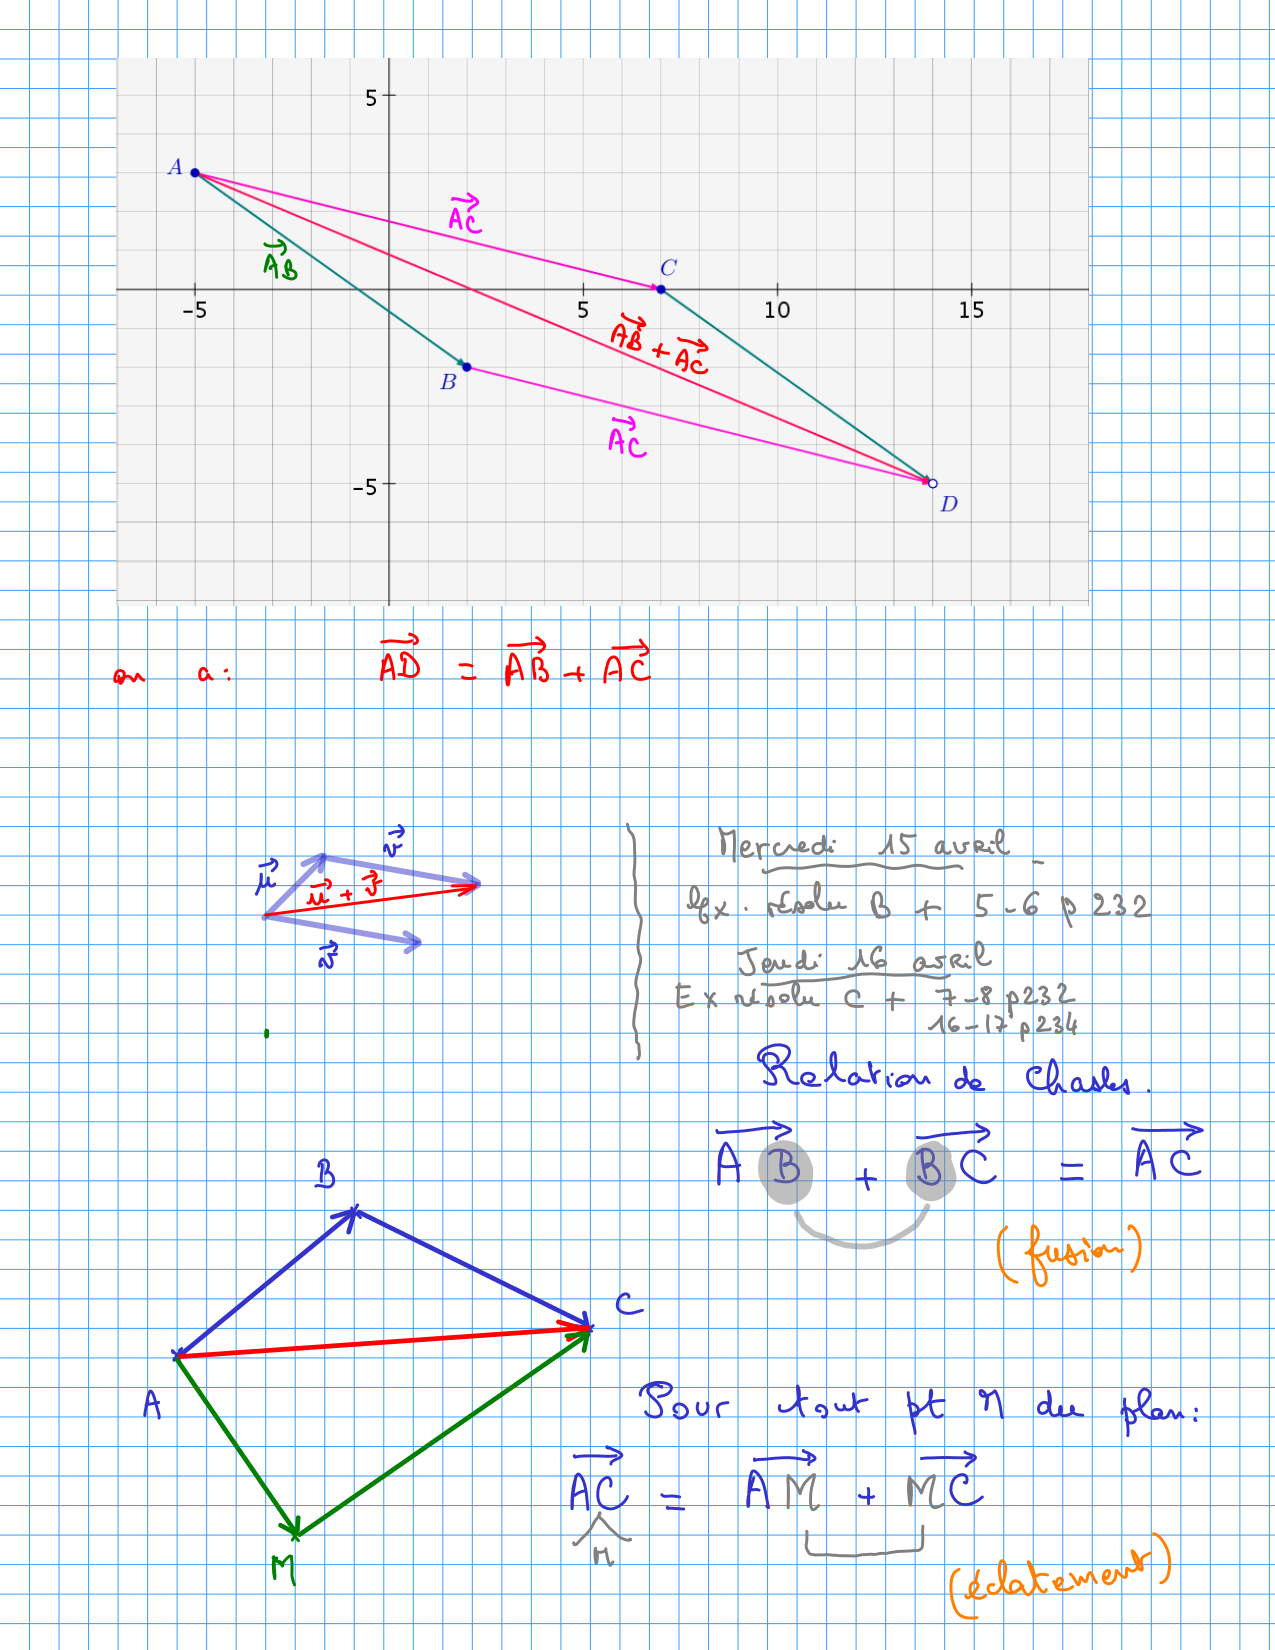 5
A
AC
AB
C
-5 5 10 15
AB + AC
B
AC
-5
D
on a : AD = AB + AC
u
v
u + v
v
Mercredi 15 avril -
Ex. résolu B + 5-6 p 232
Jeudi 16 avril
Ex résolu C + 7-8 p232
16-17 p234
Relation de Chasles.
AB + BC = AC
(fusion)
B
C
A
M
Pour tout pt M du plan :
AC = AM + MC
M
(éclatement)